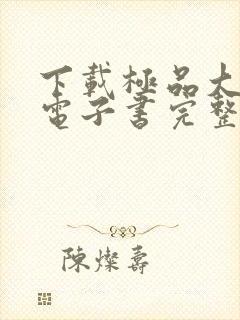 下載極品太
電子書完整
陳燦壽